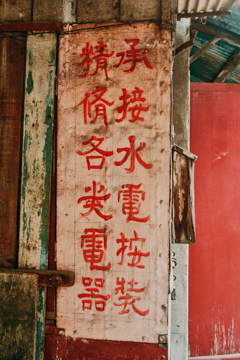 承接水電按裝
精修各类電器